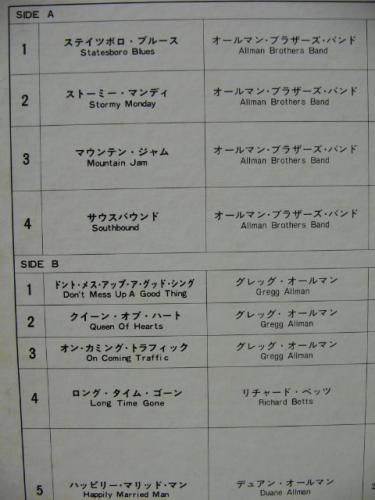 SIDE A
1
ステイツボロ・ブルース
Statesboro Blues
オールマン・ブラザーズ・バンド
Allman Brothers Band
2
ストーミー・マンディ
Stormy Monday
オールマン・ブラザーズ・バンド
Allman Brothers Band
3
マウンテン・ジャム
Mountain Jam
オールマン・ブラザーズ・バンド
Allman Brothers Band
4
サウスバウンド
Southbound
オールマン・ブラザーズ・バンド
Allman Brothers Band
SIDE B
1
ドント・メス・アップ・ア・グッド・シング
Don't Mess Up A Good Thing
グレッグ・オールマン
Gregg Allman
2
クイーン・オブ・ハート
Queen Of Hearts
グレッグ・オールマン
Gregg Allman
3
オン・カミング・トラフィック
On Coming Traffic
グレッグ・オールマン
Gregg Allman
4
ロング・タイム・ゴーン
Long Time Gone
リチャード・ベッツ
Richard Betts
5
ハッピリー・マリッド・マン
Happily Married Man
デュアン・オールマン
Duane Allman